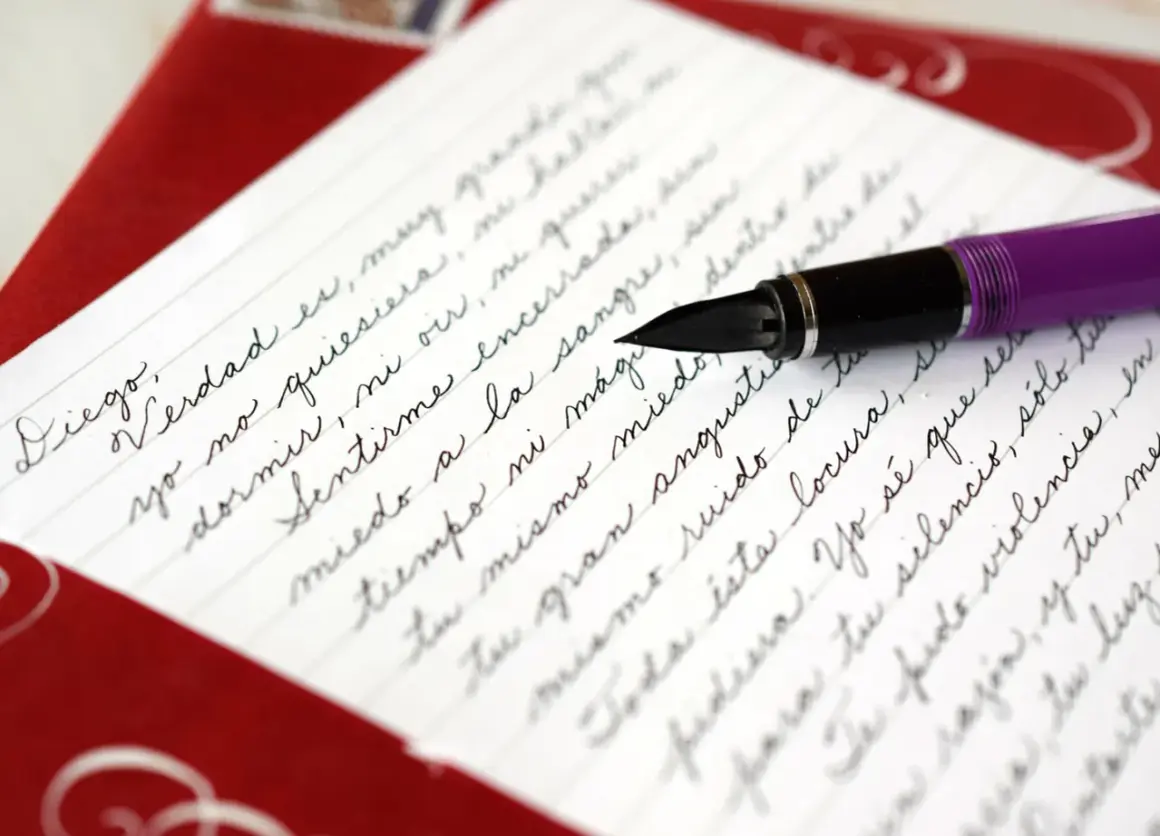 Diego,
Verdad es, muy grande, que
yo no quiesiera, ni hablar, ni
dormir, ni oir, ni querer.
Sentirme encerrada, sin
miedo a la sangre, sin
tiempo ni mág dentro de
tu mismo miedo, dentro de
tu gran angustia el
mismo ruido de tu
Toda ésta locura, si
pidiera. Yo sé que
para tu silencio, sólo
Te pido violencia, en
razón, y tu, me
tu luz